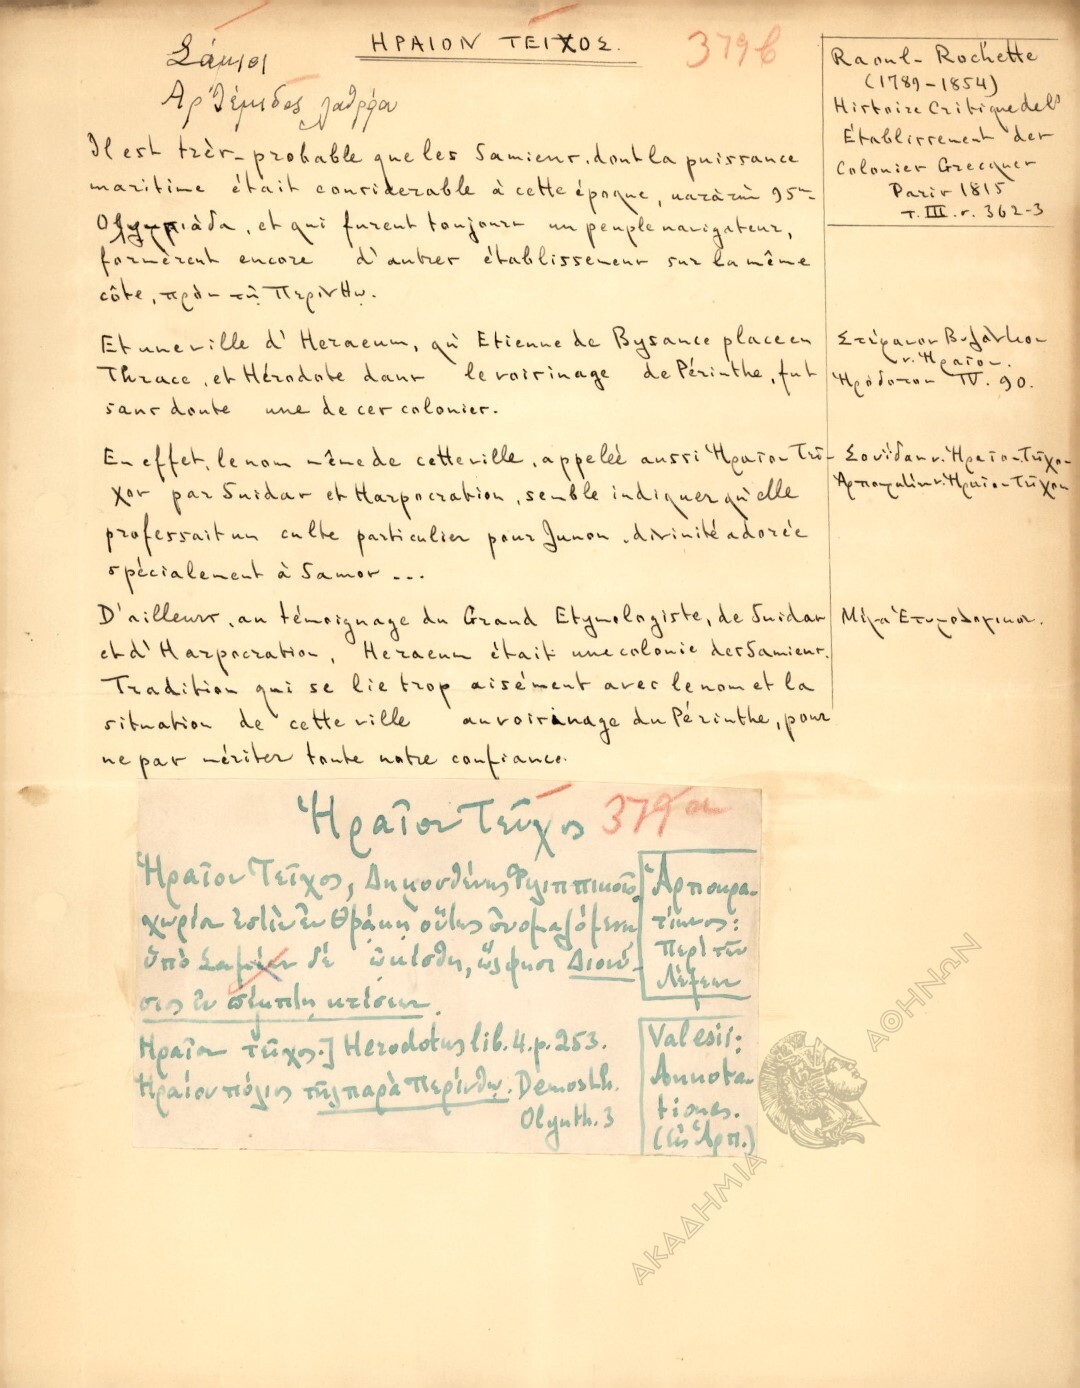 ΗΡΑΙΟΝ ΤΕΙΧΟΣ.
379β
Σάμιοι
Ἀρτέμιδος λατρεία
Raoul-Rochette
(1789-1854)
Histoire Critique de l'
Établissement des
Colonies Grecques
Paris 1815
τ. III. σ. 362-3
Il est très-probable que les Samiens, dont la puissance
maritime était considerable à cette époque, κατὰ τὴν 95ην
Ολυμπιάδα, et qui furent toujours un peuple navigateur,
formèrent encore d'autres établissemens sur la même
côte, πρὸς τῇ Περίνθῳ.
Et une ville d'Heraeum, qu'Etienne de Bysance place en
Thrace, et Hérodote dans le voisinage de Périnthe, fut
sans doute une de ces colonies.
Στέφανον Βυζάντιον
ν. Ἡραῖον.
Ἡρόδοτον IV. 90.
En effet, le nom même de cette ville, appelée aussi Ἡραῖον Τεῖ-
χος par Suidas et Harpocration, semble indiquer qu'elle
professait un culte particulier pour Junon, divinité adorée
spécialement à Samos ...
Σουΐδαν ν. Ἡραῖον Τεῖχος
Ἁρποκρατίων ν. Ἡραῖον Τεῖχος
D'ailleurs, au témoignage du Grand Etymologiste, de Suidas
et d'Harpocration, Heraeum était une colonie des Samiens.
Tradition qui se lie trop aisément avec le nom et la
situation de cette ville au voisinage du Périnthe, pour
ne pas mériter toute notre confiance.
Μέγα Ἐτυμολογικόν.
Ἡραῖον Τεῖχος
379α
Ἡραῖον Τεῖχος, Δημοσθένης Φιλιππικοῖς,
χωρίον ἐστὶν ἐν Θράκῃ οὕτως ὀνομαζόμενον
ὑπὸ Σαμίων δέ ᾠκίσθη, ὥς φησι Διονύ-
σιος ἐν πέμπτῃ κτίσεων.
Ἁρποκρα-
τίωνος:
Περὶ τῶν
Λέξεων
Ἡραῖον τεῖχος.] Herodotus lib. 4. p. 253.
Ἡραίου πόλιος τῆς παρὰ Περίνθῳ. Demosth.
Olynth. 3
Valesii:
Annota-
tiones.
(εἰς Ἁρπ.)
ΑΚΑΔΗΜΙΑ ΑΘΗΝΩΝ